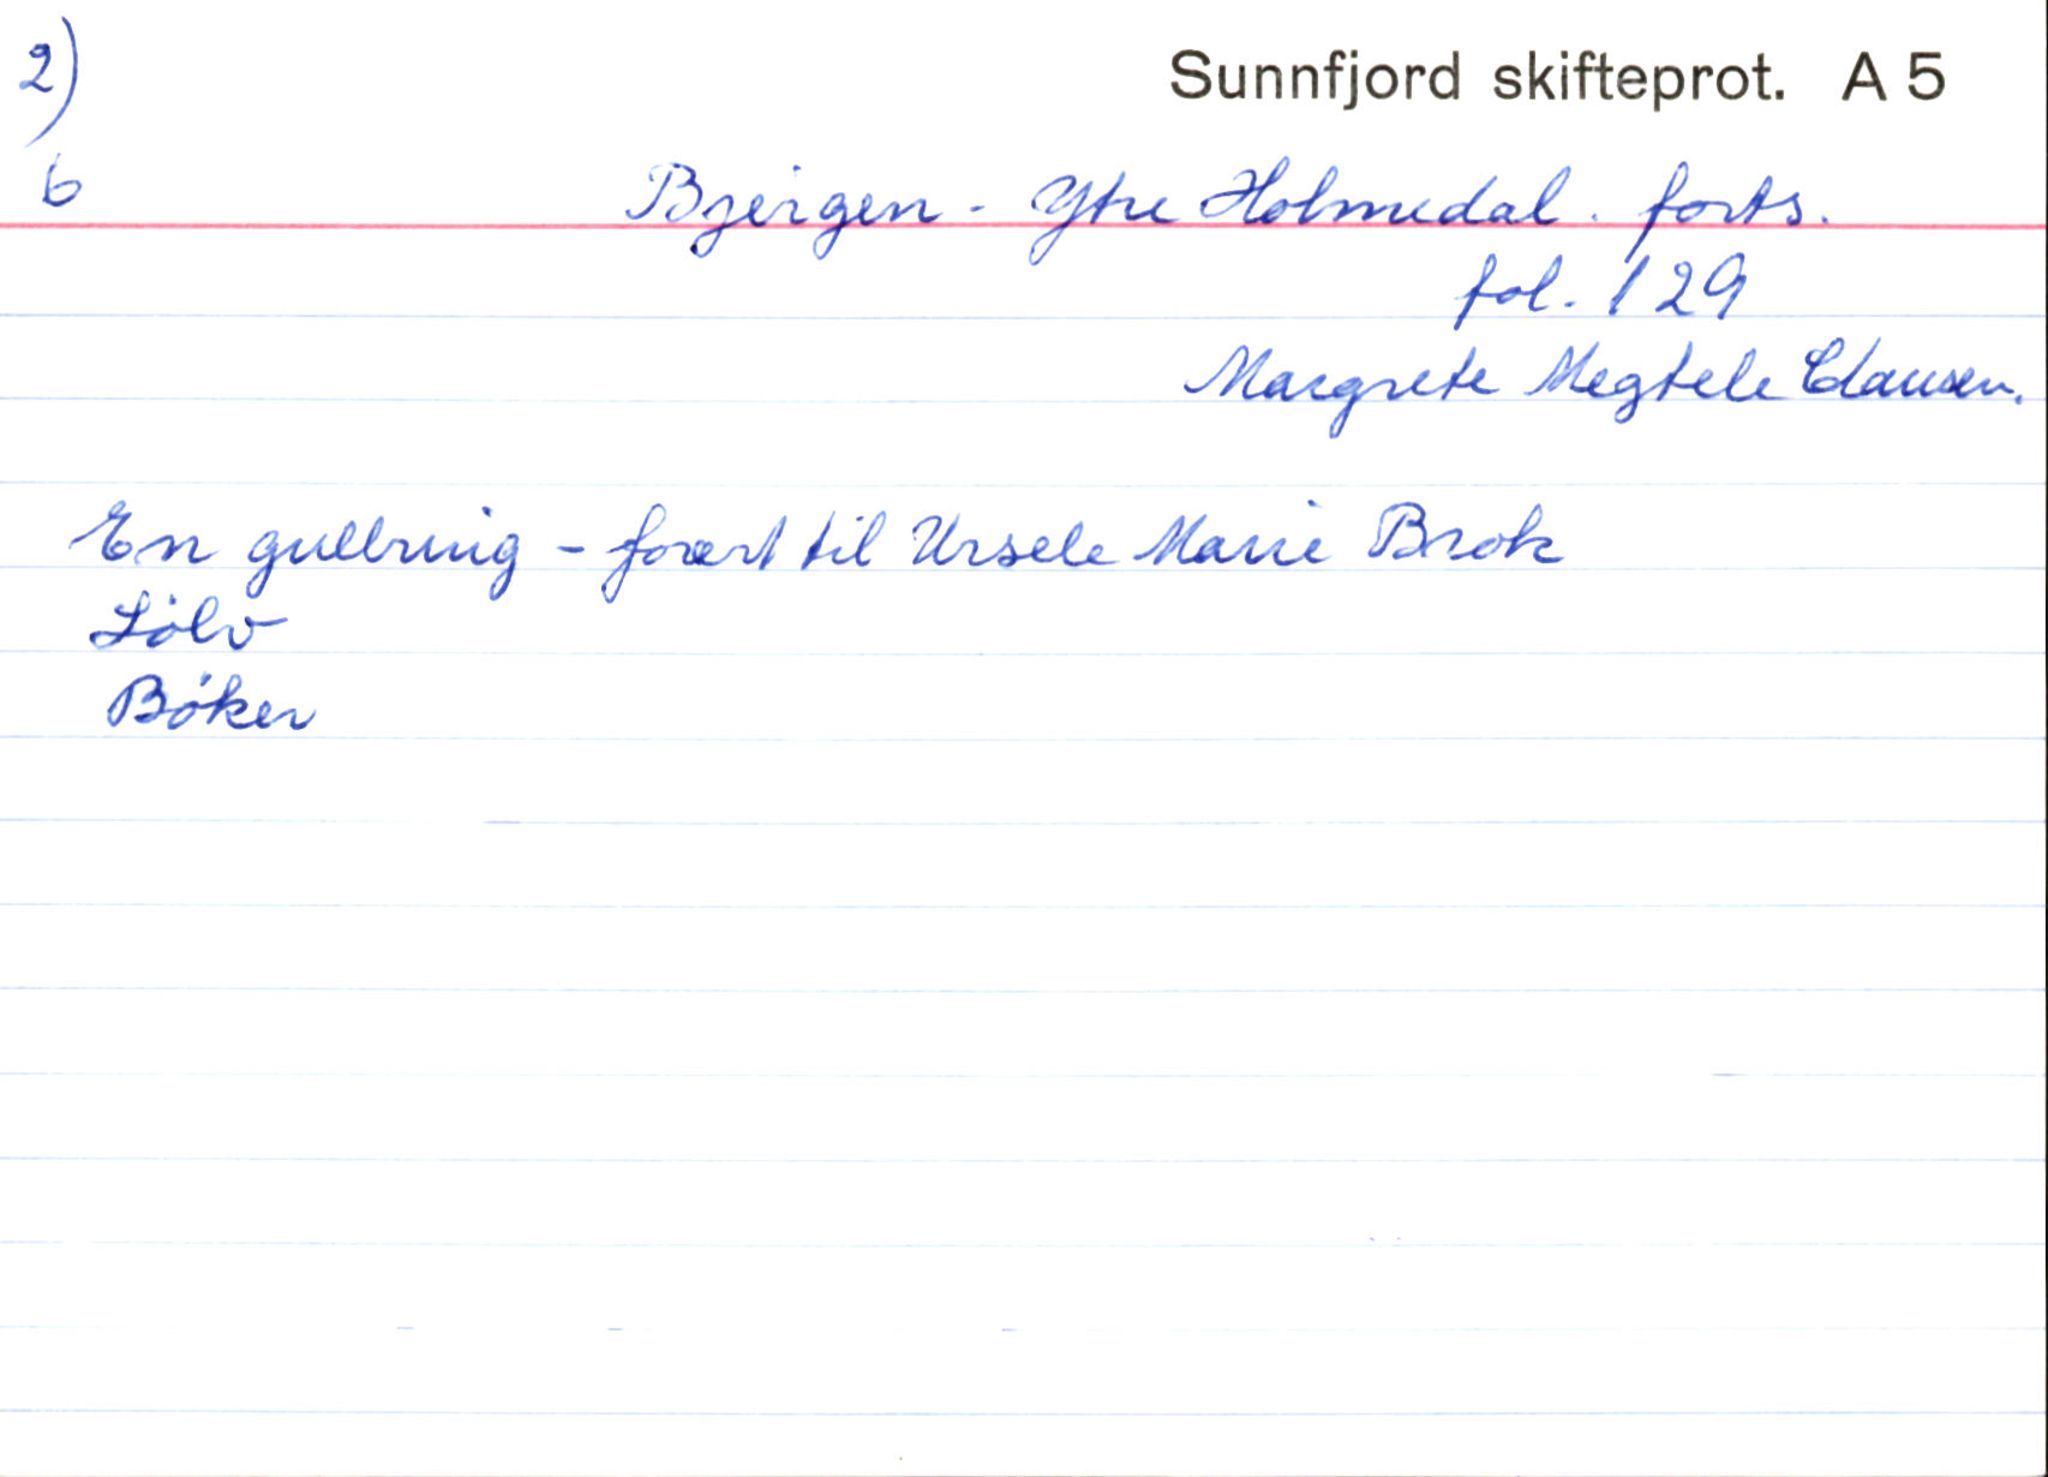 2)
Sunnfjord skifteprot. A 5
6
Bjergen - Ytre Holmedal. forts.
fol. 129
Margrete Megtele Clausen.
En gullring - foræert til Ursele Marie Brok
Sölv
Böker